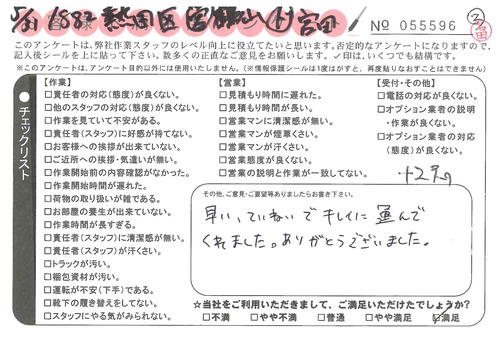 5/31 1882 熱田区
宮田
№ 055596
②
このアンケートは、弊社作業スタッフのレベル向上に役立てたいと思います。否定的なアンケートになりますので、
記入後シールを上に貼って下さい。数多くの正直なご意見をお願いします。✓印は、いくつでも結構です。
※このアンケートは、アンケート目的以外には使用いたしません。(※情報保護シールは1度はがすと、再度貼りなおすことはできません)
チェックリスト
【作業】
□責任者の対応(態度)が良くない。
□他のスタッフの対応(態度)が良くない。
□作業を見ていて不安がある。
□責任者(スタッフ)に好感が持てない。
□お客様への挨拶が出来ていない。
□ご近所への挨拶・気遣いが無い。
□作業開始前の内容確認がなかった。
□作業開始時間が遅れた。
□荷物の取り扱いが雑である。
□お部屋の養生が出来ていない。
□作業時間が長すぎる。
□責任者(スタッフ)に清潔感が無い。
□責任者(スタッフ)が汗くさい。
□トラックが汚い。
□梱包資材が汚い。
□運転が不安(下手)である。
□靴下の履き替えをしてない。
□スタッフにやる気がみられない。
【営業】
□見積もり時間に遅れた。
□見積もり時間が長い。
□営業マンに清潔感が無い。
□営業マンが煙草くさい。
□営業マンが汗くさい。
□営業態度が良くない。
□営業の説明と作業が一致してない。
【受付・その他】
□電話の対応が良くない。
□オプション業者の説明
・作業が良くない。
□オプション業者の対応
(態度)が良くない。
その他、ご意見・ご要望等ありましたらお書き下さい。
早い、ていねいで キレイに 運んで
くれました。ありがとうございました。
☆当社をご利用いただきまして、ご満足いただけたでしょうか?
□不満 □やや不満 □普通 □やや満足 ☑満足